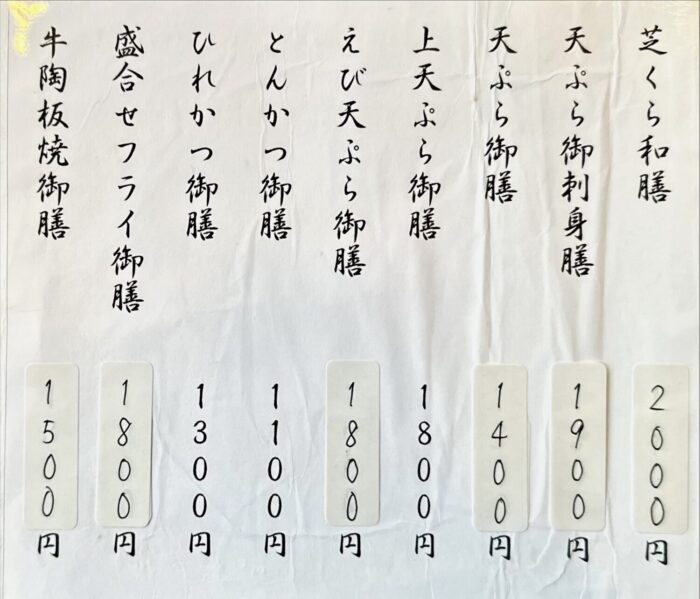 芝くら和膳 2000円
天ぷら御刺身膳 1900円
天ぷら御膳 1400円
上天ぷら御膳 1800円
えび天ぷら御膳 1800円
とんかつ御膳 1100円
ひれかつ御膳 1300円
盛合せフライ御膳 1800円
牛陶板焼御膳 1500円